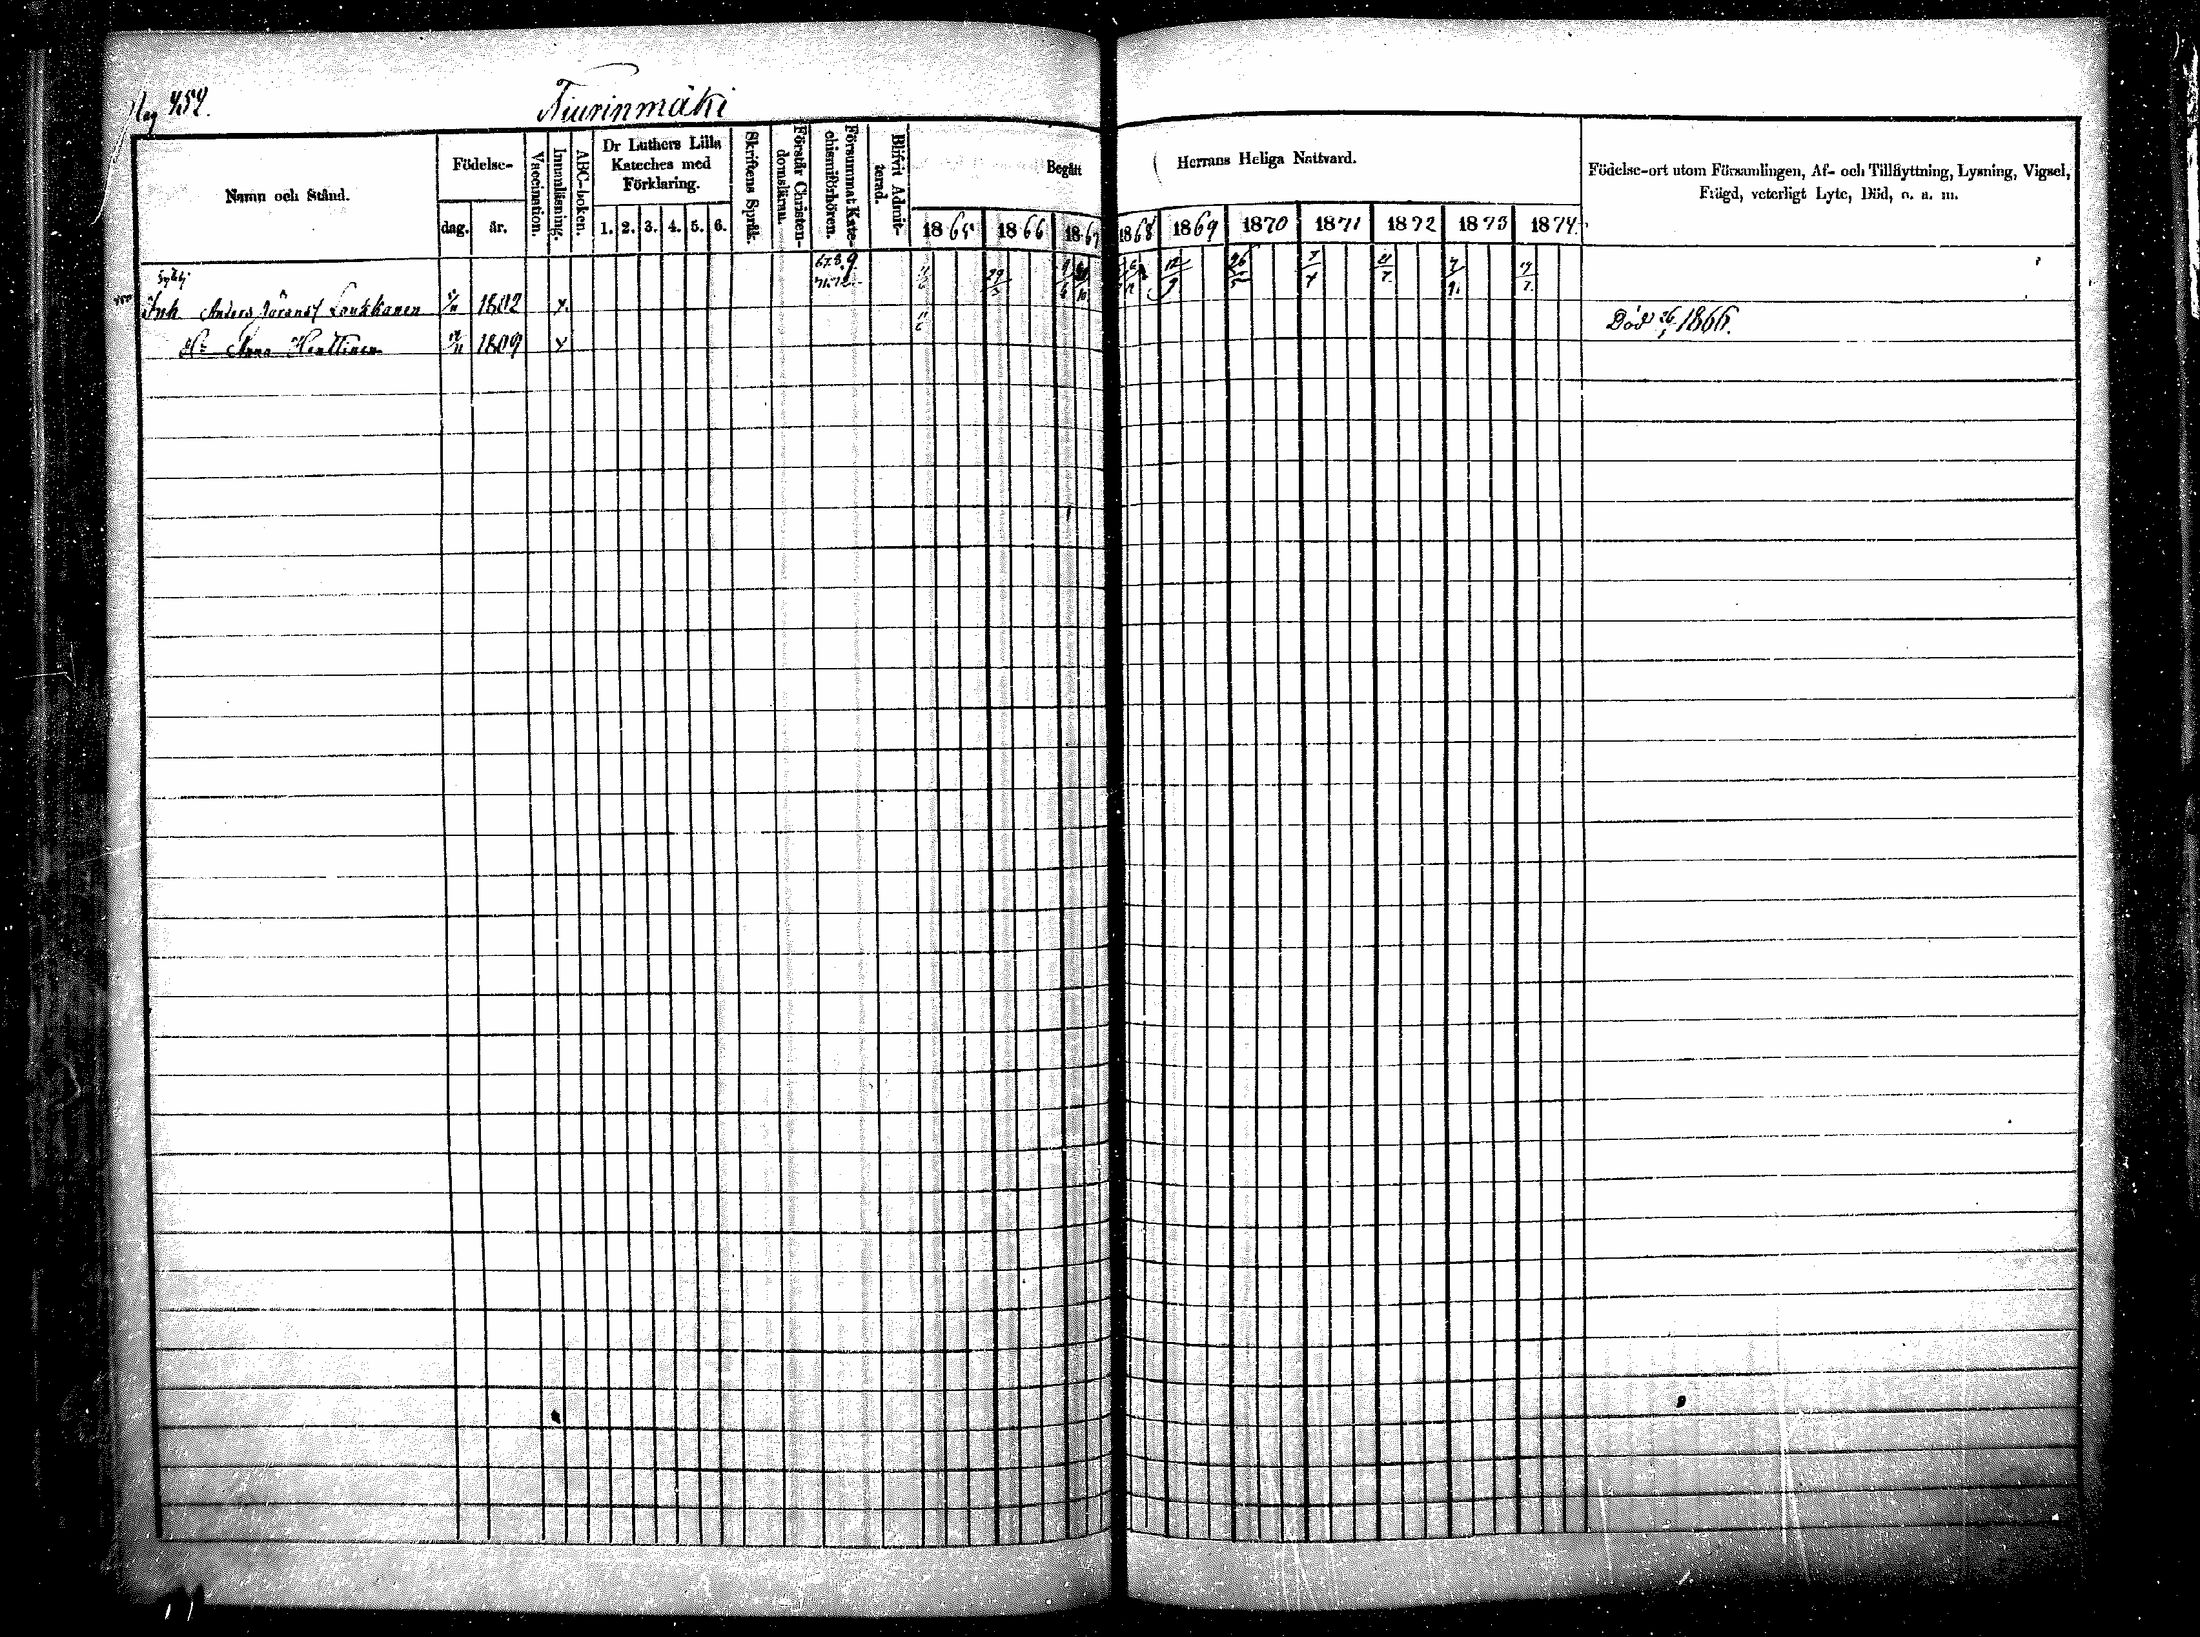 Pag 452.
Tiurinmäki
Namn och Stånd.
Födelse-
dag.
år.
Vaccination.
Innanläsning.
ABC-boken.
Dr Luthers Lilla Kateches med Förklaring.
1. 2. 3. 4. 5. 6.
Skriftens Språk.
Förstår Christendomsläran.
Försummat Katechismiförhören.
Blifvit Admitterad.
Begått
Herrans Heliga Nattvard.
1865 1866 1867 1868 1869 1870 1871 1872 1873 1874.
Födelse-ort utom Församlingen, Af- och Tillflyttning, Lysning, Vigsel,
Frägd, veterligt Lyte, Död, o. s. m.
Inh Anders Göranss Loukkanen 1802 x.
Hu Anna Henttinen 1809 x
Död 26/5 1866.